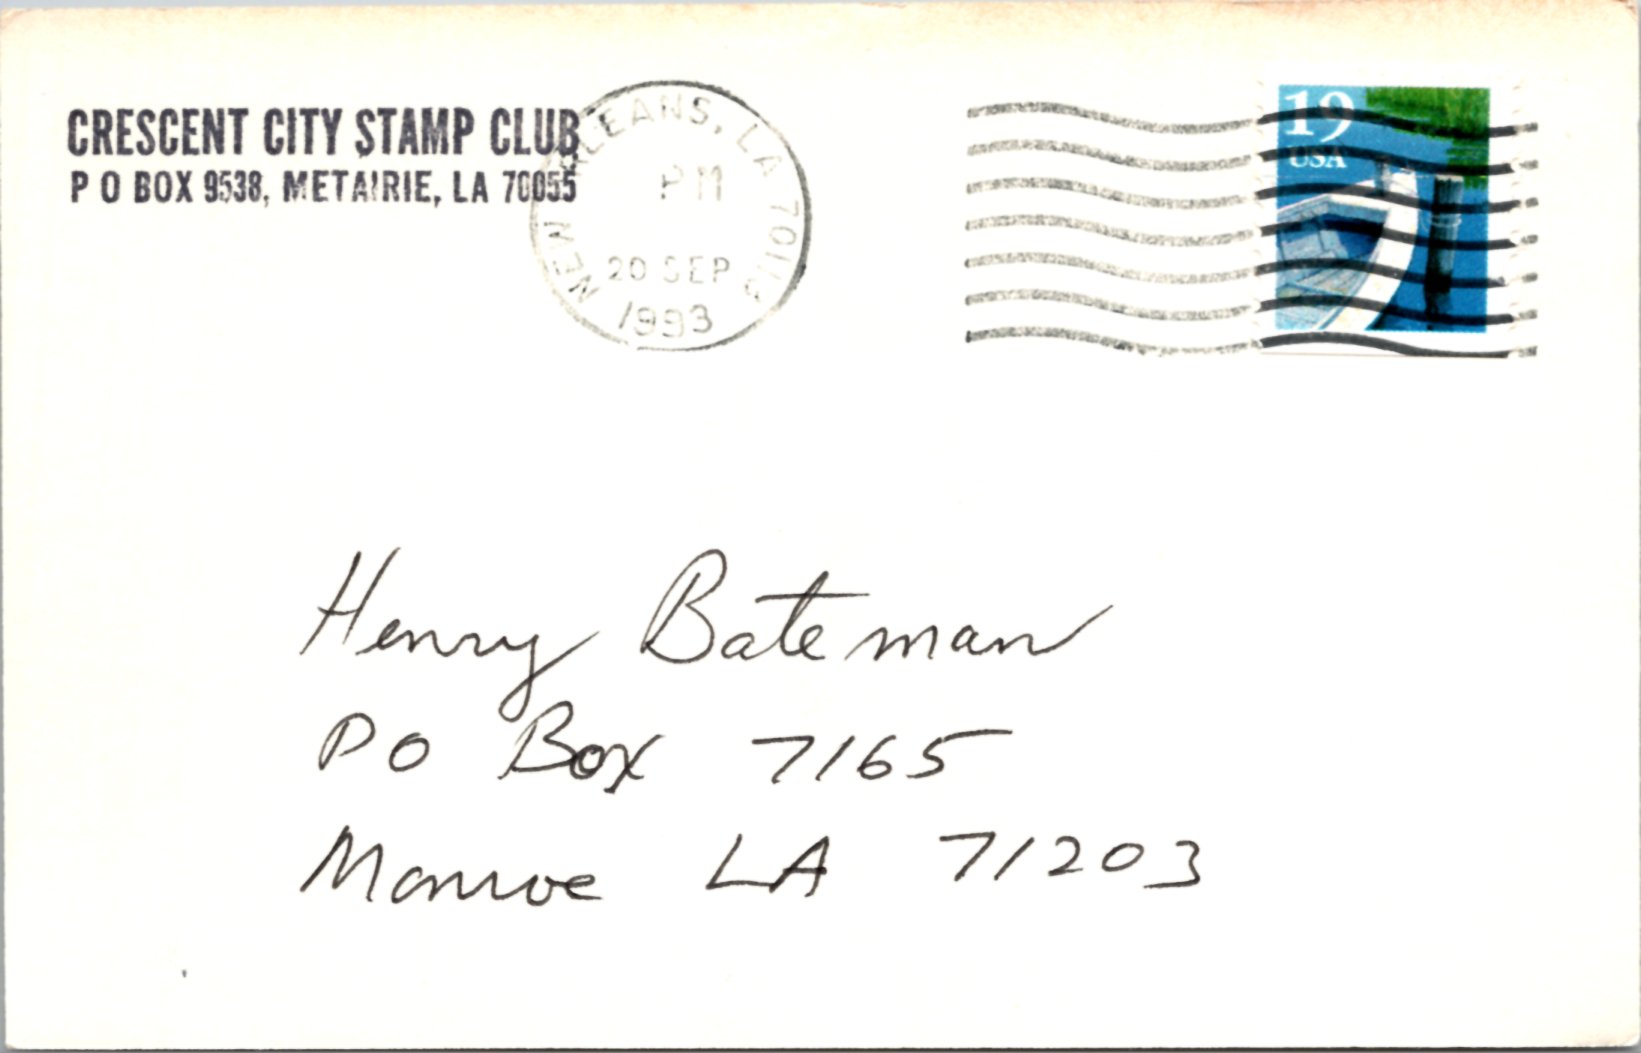 CRESCENT CITY STAMP CLUB
P O BOX 9538, METAIRIE, LA 70055
NEW ORLEANS, LA
PM
20 SEP
1993
19
USA
Henry Bateman
PO Box 7165
Monroe LA 71203